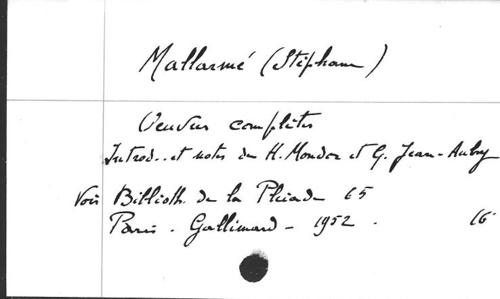 Mallarmé (Stéphane)
Oeuvres complètes
Introd. et notes de H. Mondor et G. Jean-Aubry
Voir Biblioth. de la Pleiade 65
Paris. Gallimard - 1952. 16°